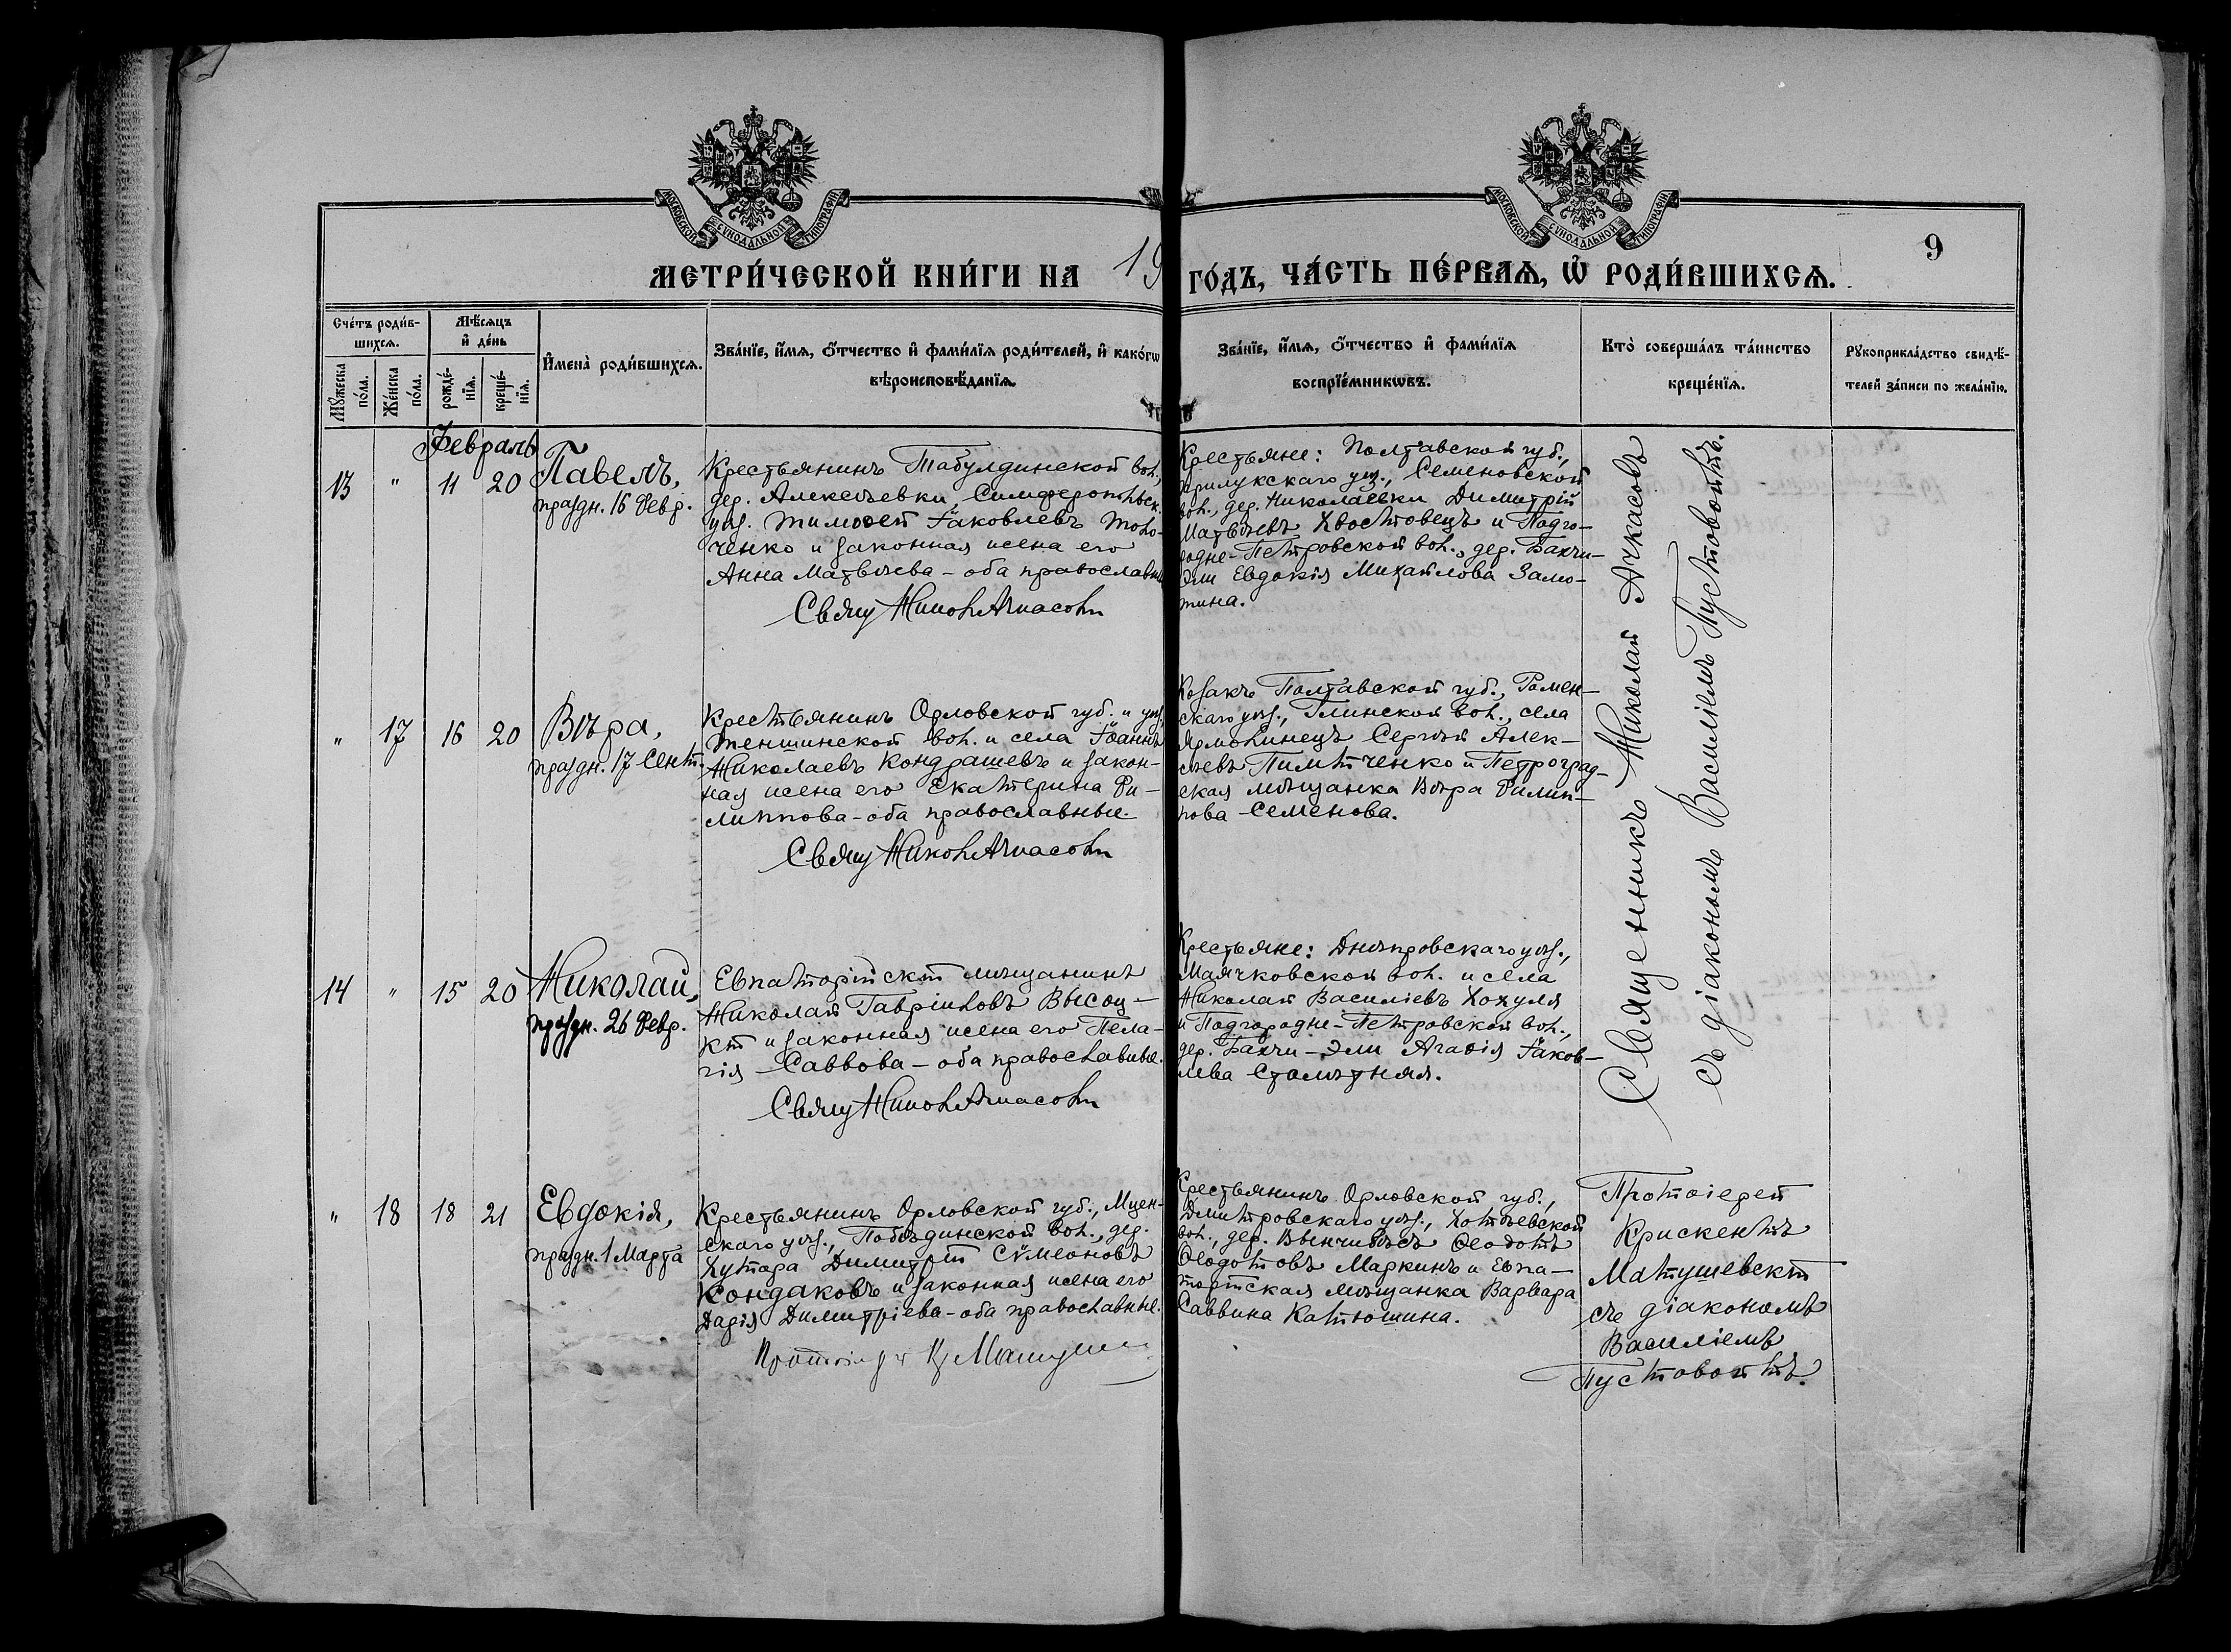 МОСКОВСКОЙ СѴНОДАЛЬНОЙ ТИПОГРАФІИ
МОСКОВСКОЙ СѴНОДАЛЬНОЙ ТИПОГРАФІИ
9
МЕТРИ́ЧЕСКОЙ КНИ́ГИ НА 19 ГО́ДЪ, ЧА́СТЬ ПЕ́РВАѦ, Ѽ РОДИ́ВШИХСѦ.
Сче́тъ роди́в-
шихсѧ.
Мꙋ́жеска
по́ла.
Же́нска
по́ла.
Мѣ́сѧцъ
и҆ де́нь
рожде́-
нїѧ.
креще́-
нїѧ.
И҆мена̀ роди́вшихсѧ.
Зва́нїе, и҆́мѧ, ѻ҆́тчество и҆ фами́лїѧ роди́телей, и҆ како́гѡ
вѣроисповѣ́данїѧ.
Зва́нїе, и҆́мѧ, ѻ҆́тчество и҆ фами́лїѧ
воспрїе́мникѡвъ.
Кто̀ соверша́лъ та́инство
креще́нїѧ.
Рꙋкоприкла́дство свидѣ́-
телей за́писи по жела́нїю.
Февраль
13 " 11 20
Павелъ,
праздн. 16 Февр.
Крестьянинъ Табулдинской вол.,
дер. Алексѣевки, Симферопольск.
уѣз. Тимоѳей Іаковлевъ Толо-
ченко и законная жена его
Анна Матвѣева - оба православны
Свящ Никол Ачкасовъ
Крестьяне: Полтавской губ.,
Прилукскаго уѣз., Семеновской
вол., дер. Николаевки Димитрій
Матвѣевъ Хвостовецъ и Подго-
родне-Петровской вол., дер. Бахчи-
Эли Евдокія Михайлова Замо-
тина.
" 17 16 20
Вѣра,
праздн. 17 Сент.
Крестьянинъ Орловской губ. и уѣз.,
Тенишинской вол. и села Іоаннъ
Николаевъ Кондрашевъ и закон-
ная жена его Екатерина Фи-
липпова - оба православные.
Свящ Никол Ачкасовъ
Козакъ Полтавской губ., Ромен-
скаго уѣз., Глинской вол., села
Ярмолинецъ Сергѣй Алек-
сѣевъ Пилипченко и Петроград-
ская мѣщанка Вѣра Филип-
пова Семенова.
14 " 15 20
Николай,
праздн. 26 Февр.
Евпаторійскій мѣщанинъ
Николай Гавріиловъ Высоц-
кій и законная жена его Пела-
гія Саввова - оба православные.
Свящ Никол Ачкасовъ
Крестьяне: Днѣпровскаго уѣз.,
Маячковской вол. и села
Николай Василіевъ Хохуля
и Подгородне-Петровской вол.,
дер. Бахчи-Эли Агаѳія Іаков-
лева Столѣтняя.
Священникъ Николай Ачкасовъ
съ діакономъ Василіемъ Пустовойтъ.
" 18 18 21
Евдокія,
праздн. 1 Марта
Крестьянинъ Орловской губ., Мцен-
скаго уѣз., Побѣдинской вол., дер.
Хутора Димитрій Сѵмеоновъ
Кондаковъ и законная жена его
Дарія Димитріева - оба православные.
Протоіерей Кр Матуше
Крестьянинъ Орловской губ.,
Дмитровскаго уѣз., Хотѣевской
вол., дер. Ѳеодотъ
Ѳеодотовъ Маркинъ и Евпа-
торійская мѣщанка Варвара
Саввина Катюшина.
Протоіерей
Крискентъ
Матушевскій
съ діакономъ
Василіемъ
Пустовойтъ.